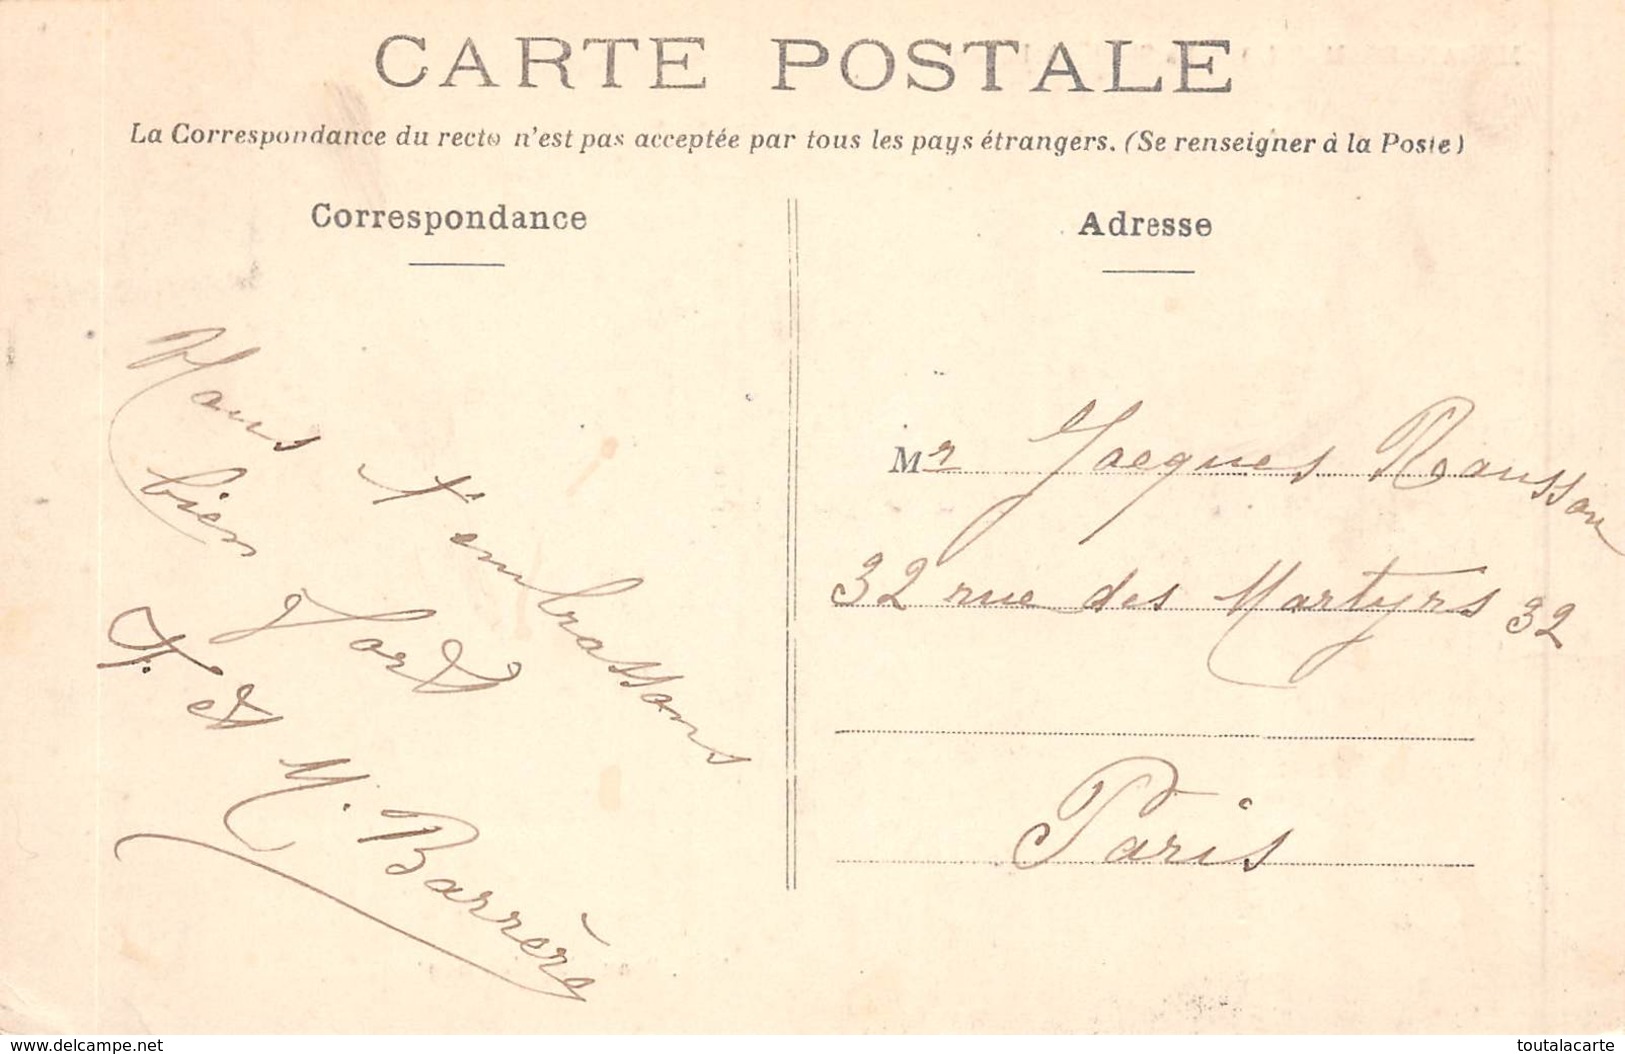 CARTE POSTALE
La Correspondance du recto n'est pas acceptée par tous les pays étrangers. (Se renseigner à la Poste)
Correspondance
Nous t'embrassons
bien fort
F. et M. Barrère
Adresse
Mr Jacques Rousson
32 rue des Martyrs 32
Paris
www.delcampe.net
toutalacarte